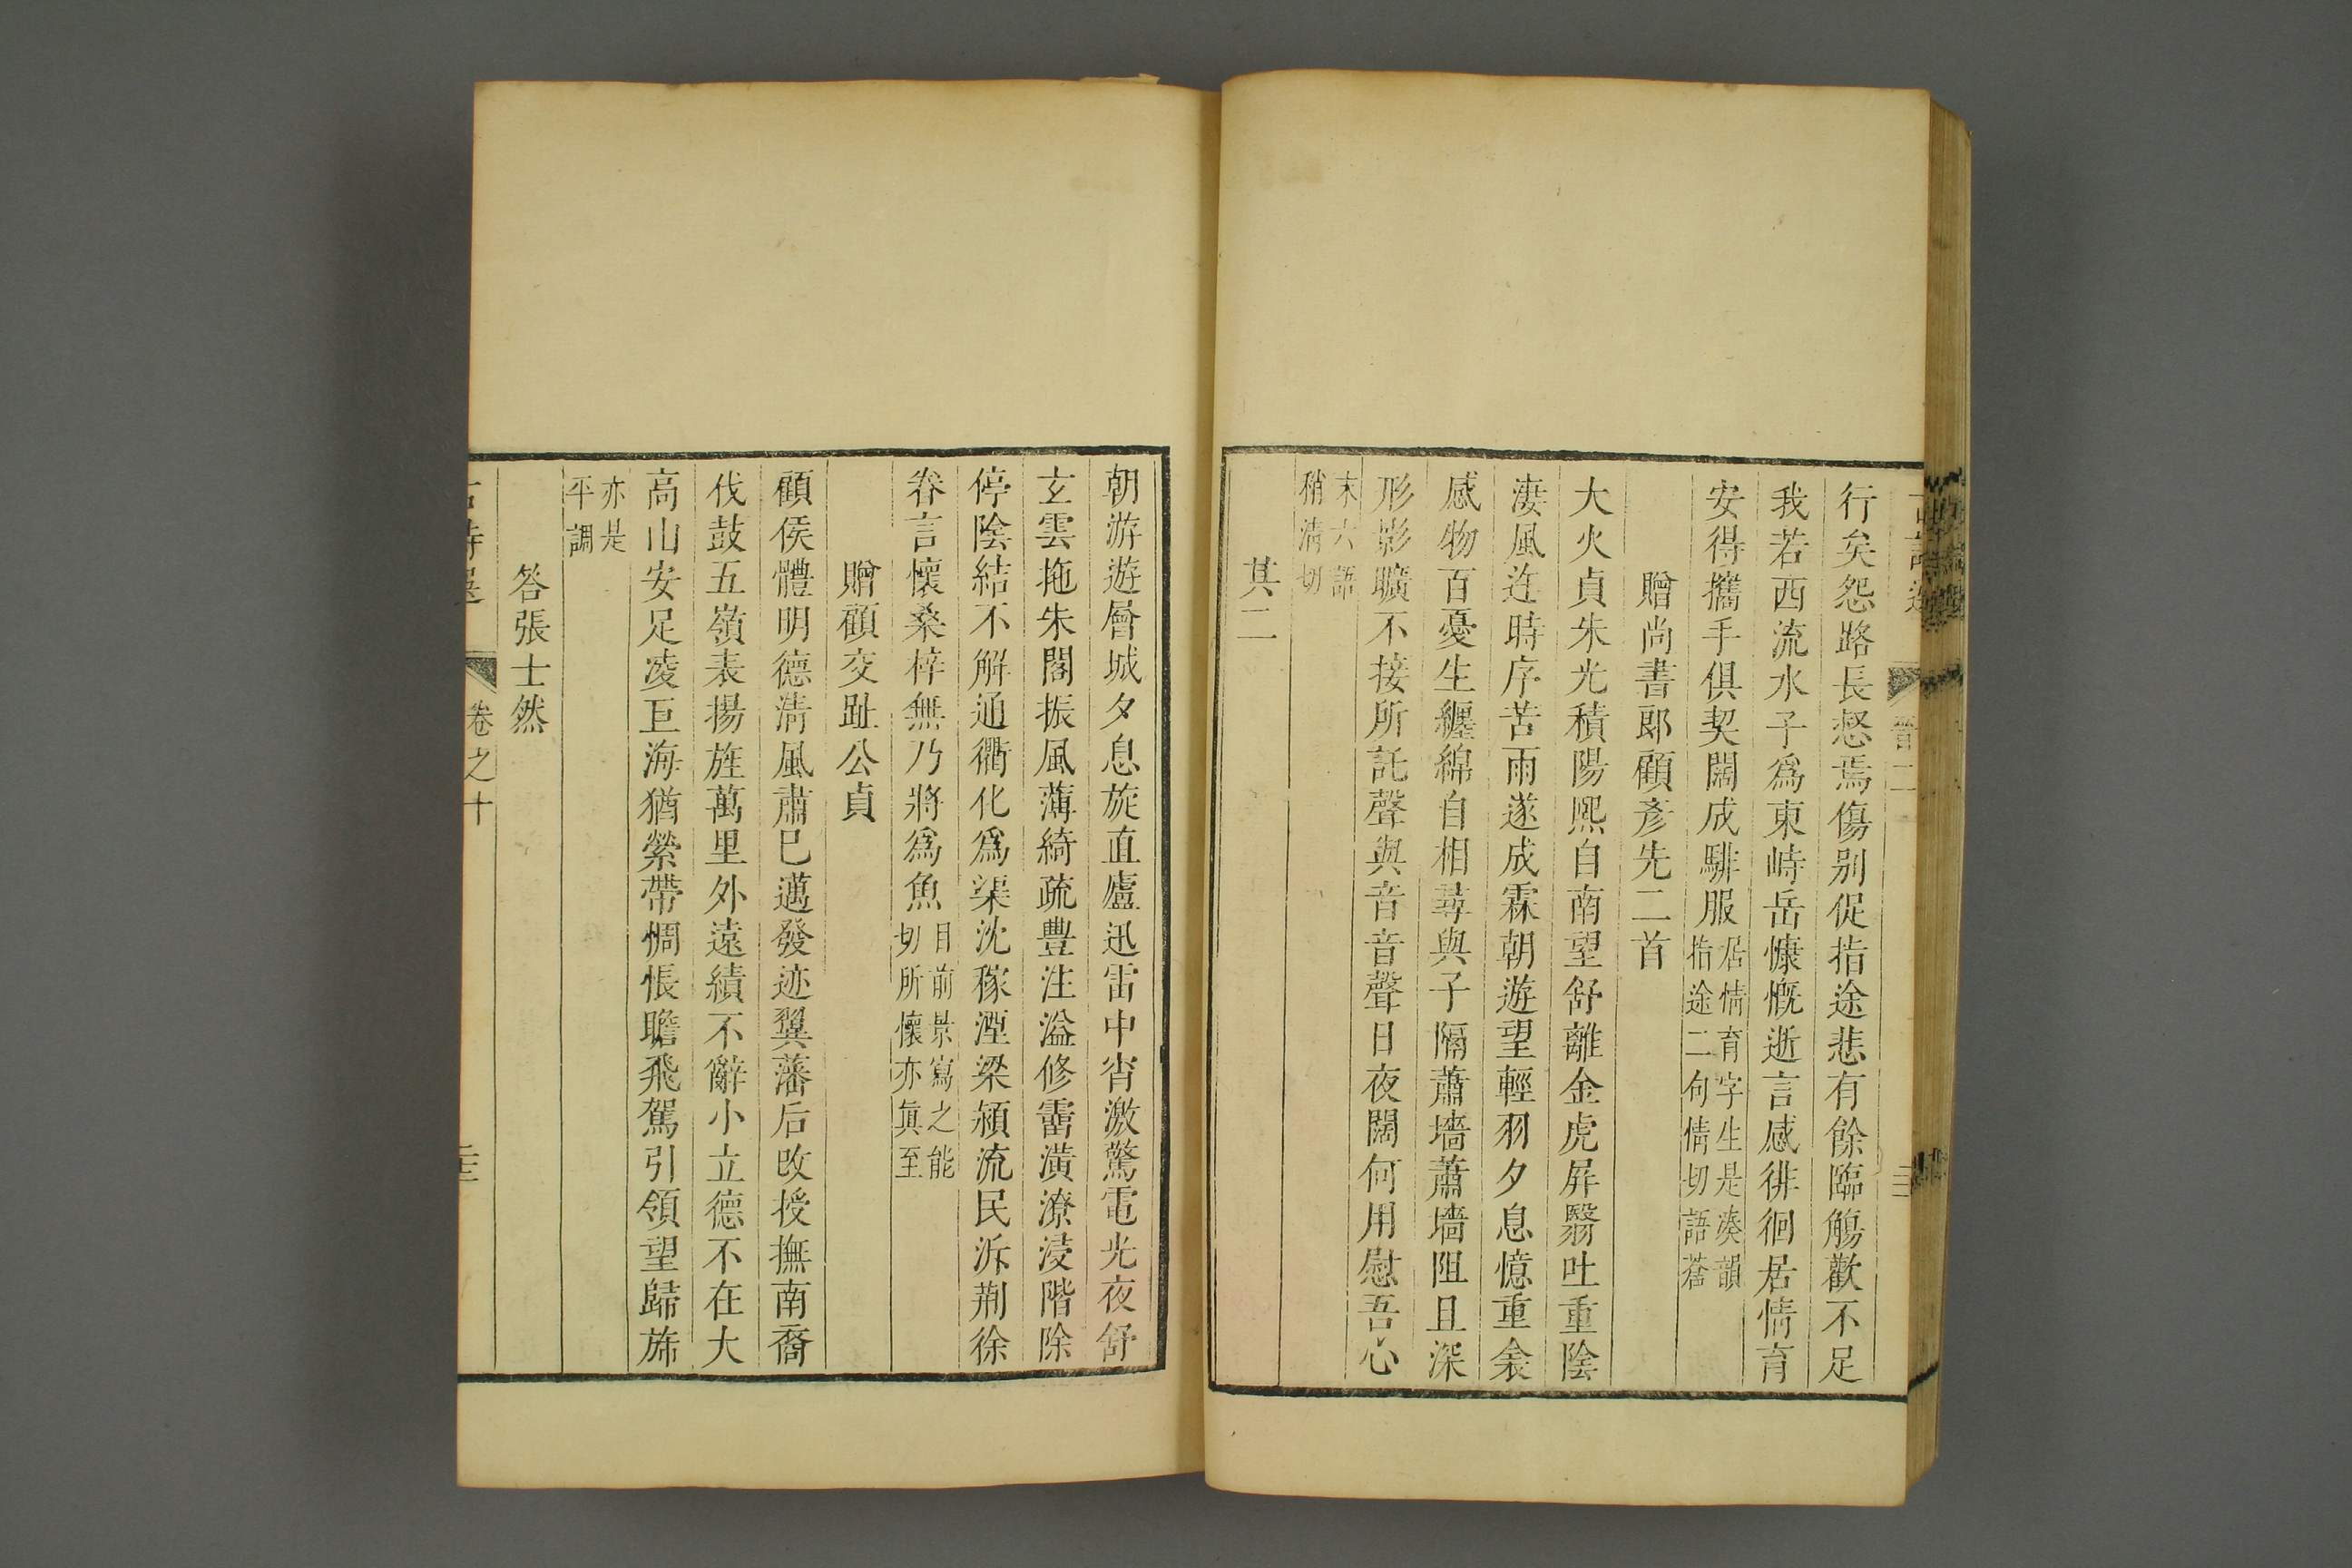 行矣怨路長惄焉傷别促指途悲有餘臨觴歡不足
我若西流水子爲東峙岳慷慨逝言感徘徊居情育
安得攜手俱契闊成騑服居情育字生是湊韻
指途二句情切語蒼
贈尚書郎顧彥先二首
大火貞朱光積陽熙自南望舒離金虎屏翳吐重陰
淒風迕時序苦雨遂成霖朝遊望輕羽夕息憶重衾
感物百憂生纏綿自相尋與子隔蕭墻蕭墻阻且深
形影曠不接所託聲與音音聲日夜闊何用慰吾心
末六語
稍淸切
其二
朝游遊層城夕息旋直廬迅雷中宵激驚電光夜舒
玄雲拖朱閣振風薄綺疏豐注溢修霤潢潦浸階除
停陰結不解通衢化爲渠沈稼湮梁潁流民泝荆徐
眷言懷桑梓無乃將爲魚目前景寫之能
切所懷亦眞至
贈顧交趾公貞
顧侯體明德淸風肅已邁發迹翼藩后改授撫南裔
伐鼓五嶺表揚旌萬里外遠績不辭小立德不在大
高山安足凌巨海猶縈帶惆悵瞻飛駕引領望歸斾
亦是
平調
答張士然
卷之十